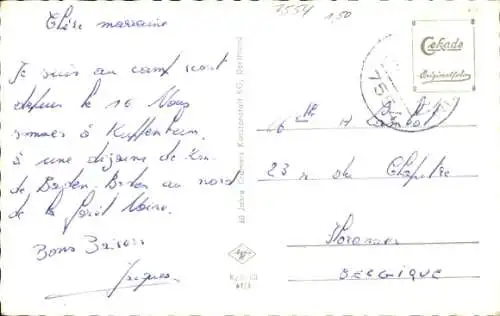 7554 1,50
Chère marraine
Je suis au camp scout
depuis le 16 Nous
sommes à Kuppenheim
à une dizaine de Km
de Baden-Baden au nord
de la forêt Noire.
Bons Baisers
Jacques
Cekade
Originalfoto
755
60 Jahre Cramers Kunstanstalt KG, Dortmund
23 r du Chapitre
BELGIQUE